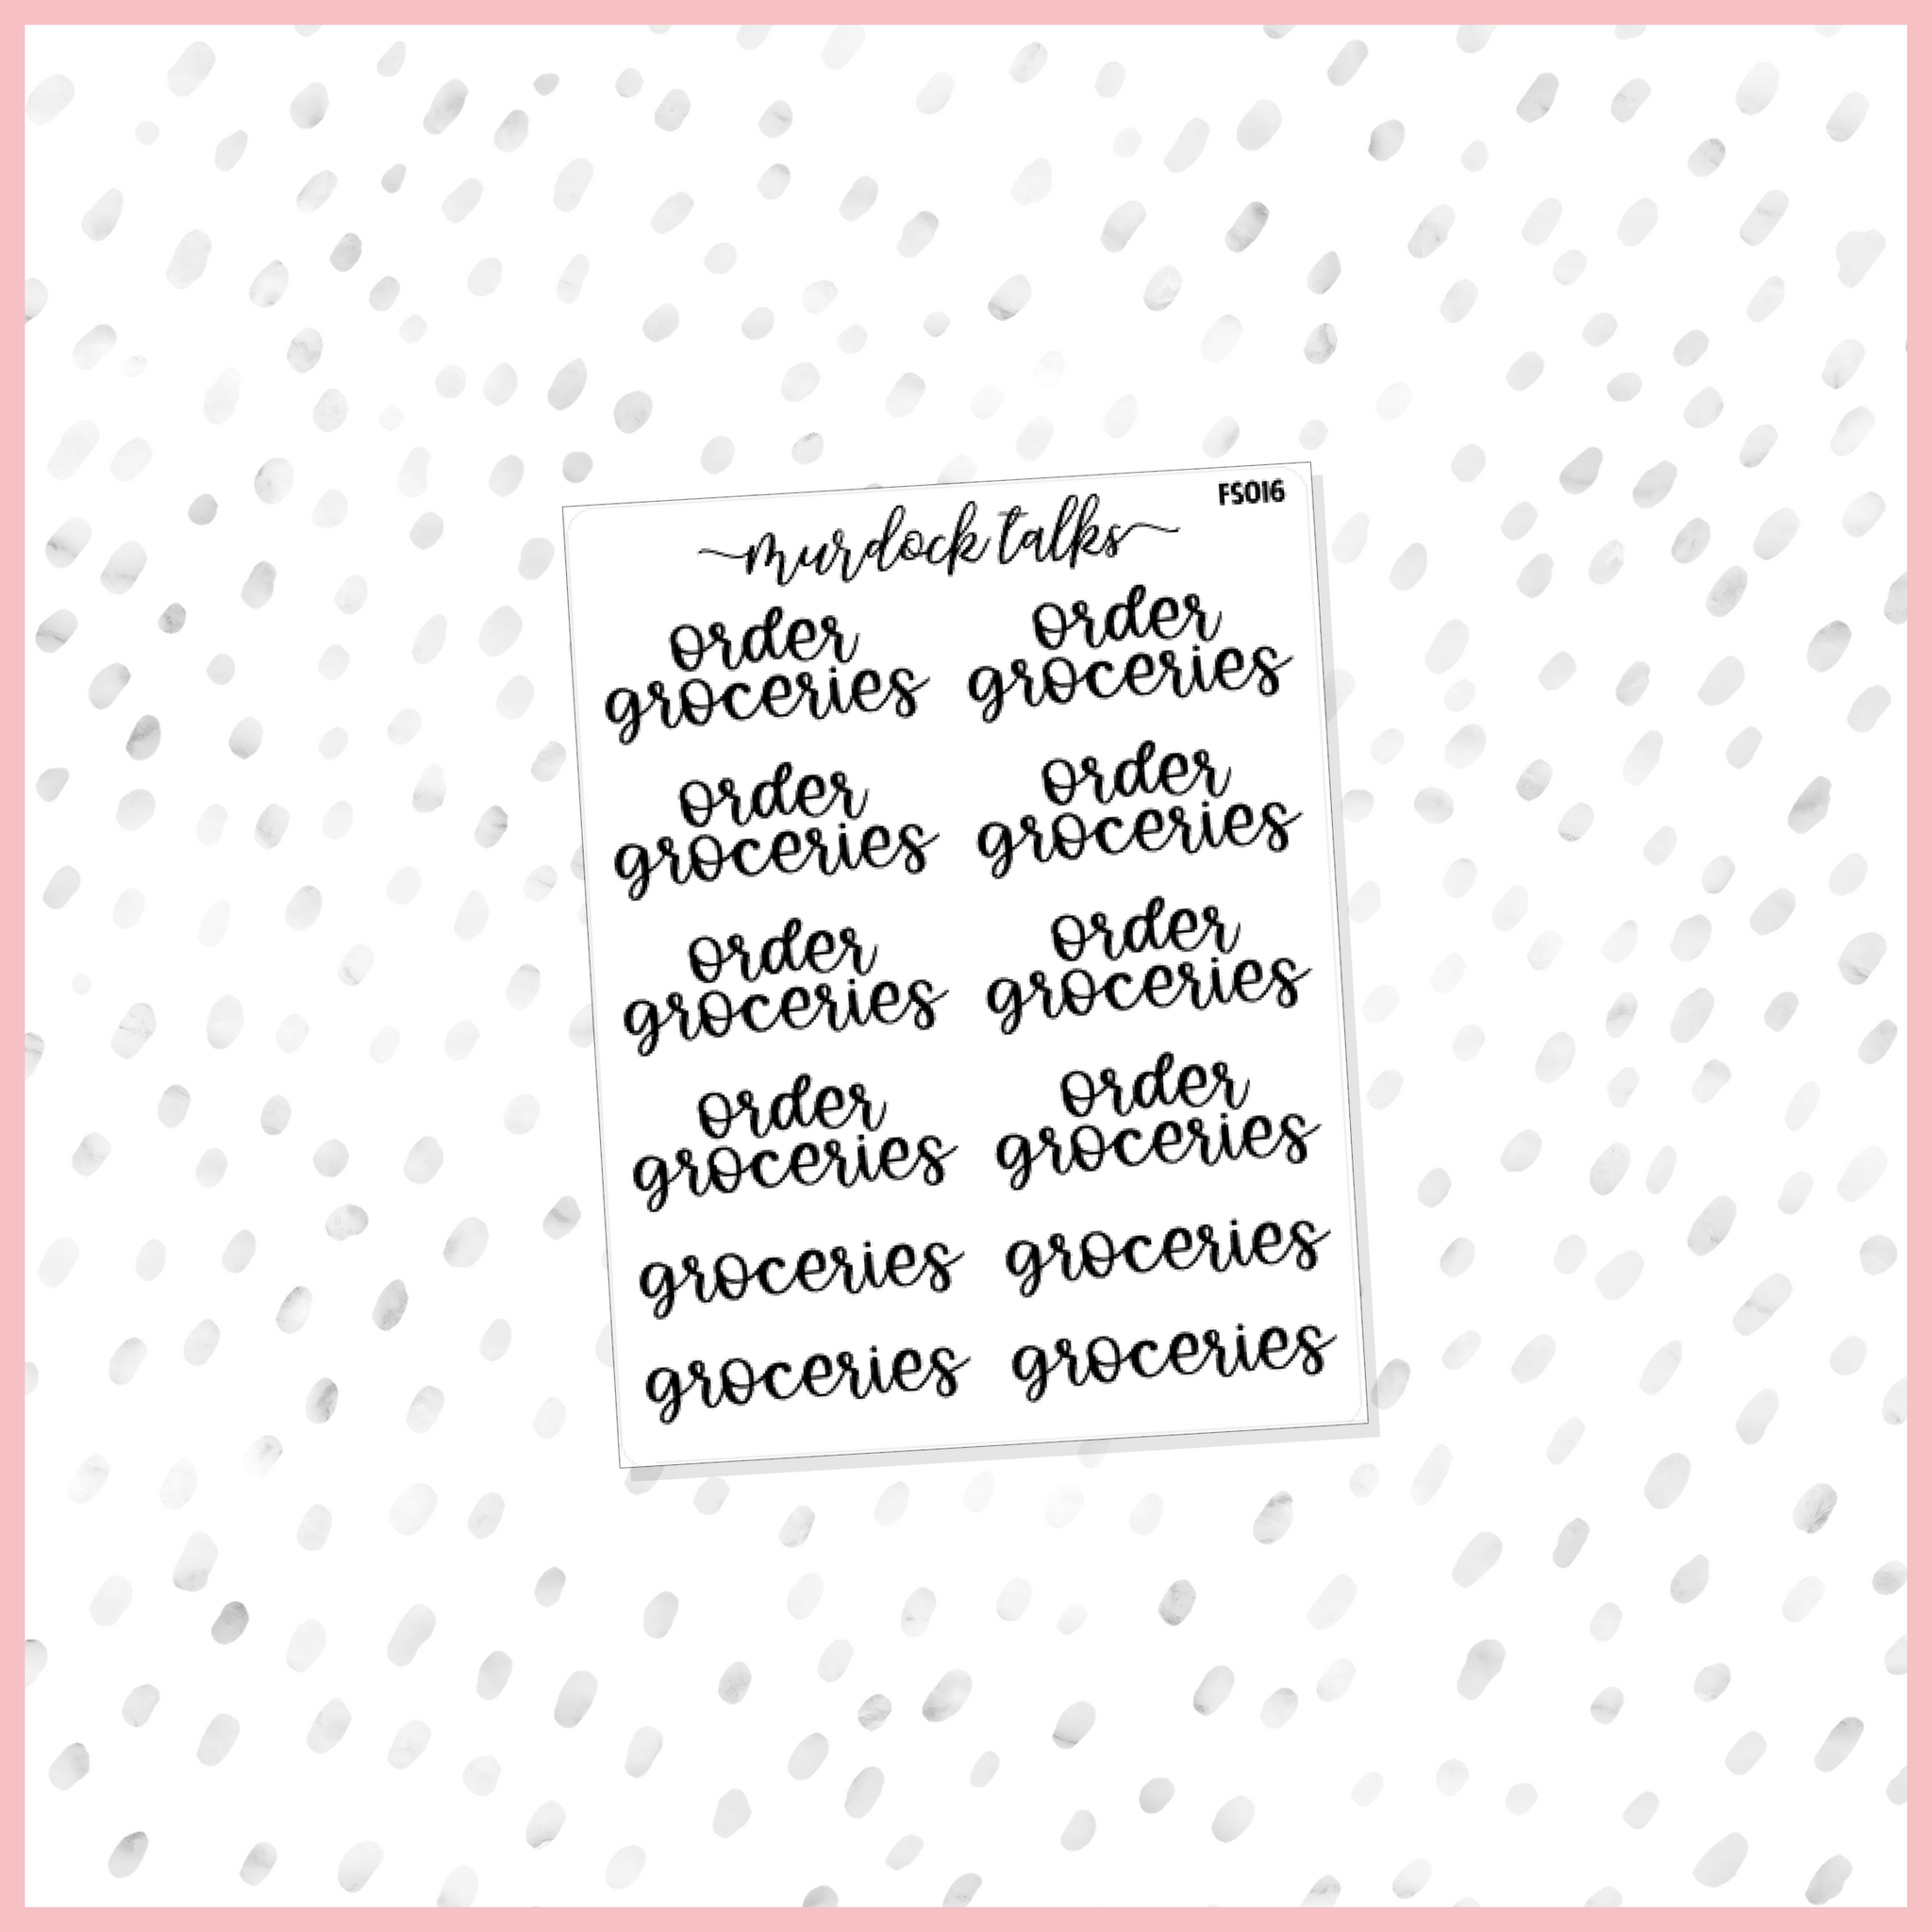 FS016
murdock talks
order order
groceries groceries
order order
groceries groceries
order order
groceries groceries
order order
groceries groceries
groceries groceries
groceries groceries